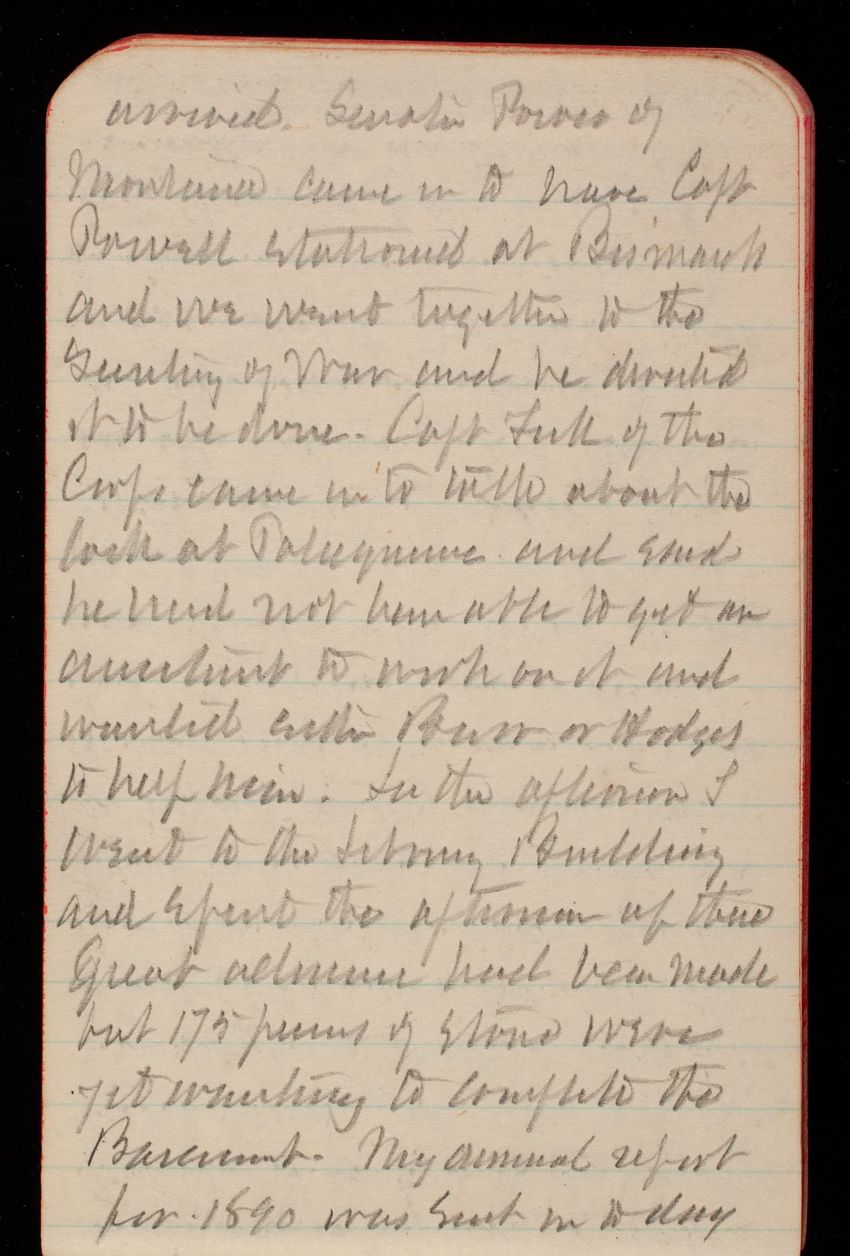 arrived. Senator Power of
Montana came in to have Capt
Powell stationed at Bismarck
and we went together to the
Secretary of War and he directed
it to be done. Capt Turtle of the
Corps came in to talk about the
lock at Plaquemine and said
he had not been able to get an
assistant to work on it and
wanted either Burr or Hodges
to help him. In the afternoon I
went to the Library Building
and spent the afternoon up there
Great advance had been made
but 175 pieces of stone were
yet wanting to complete the
Basement. My annual report
for 1890 was sent in to day